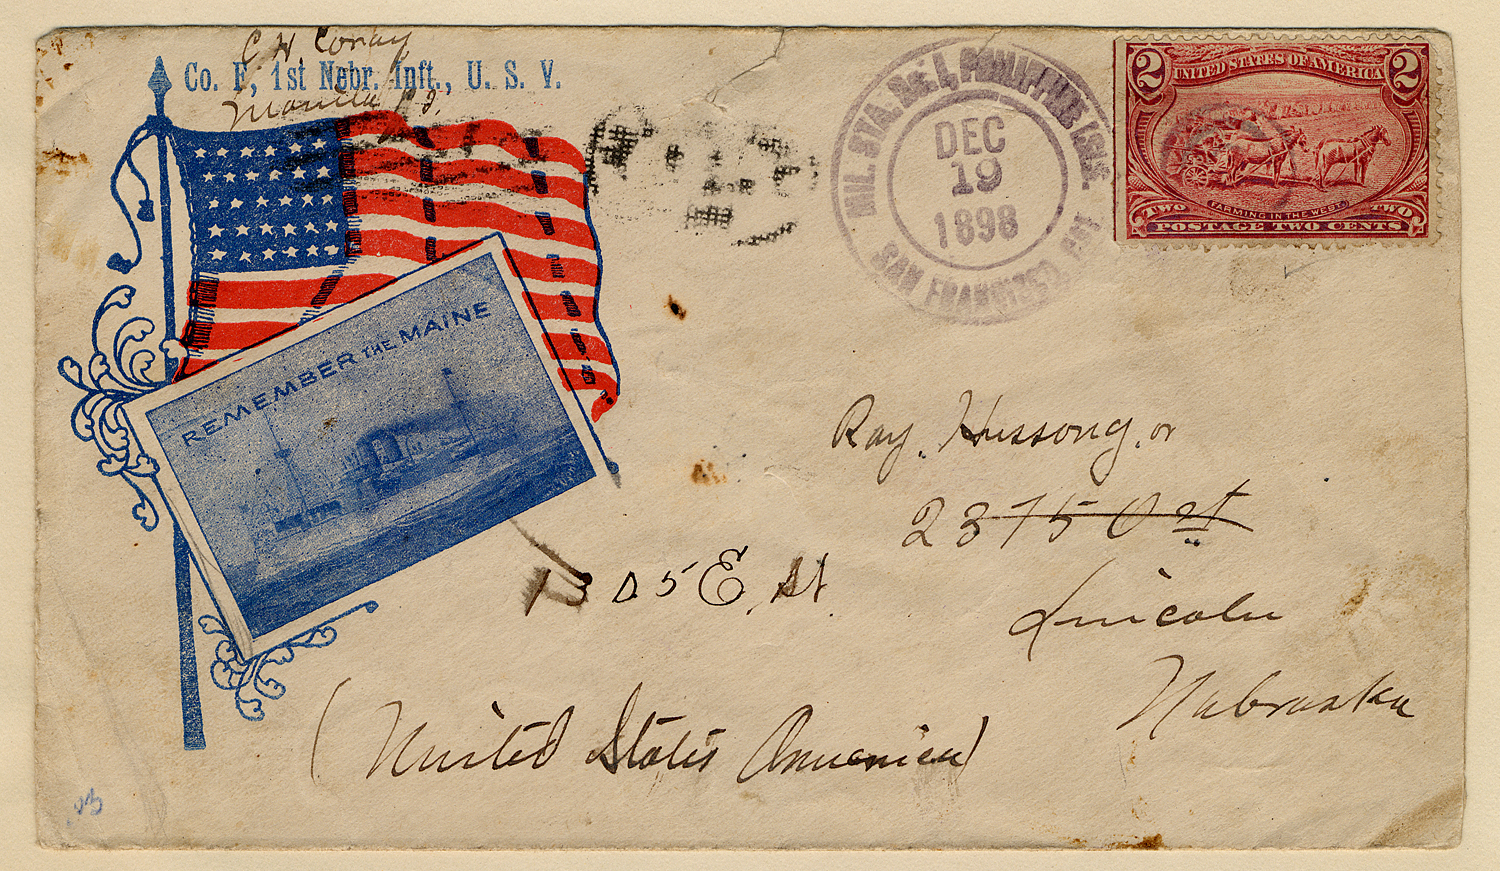 C H Conay
Co. F, 1st Nebr. Inft., U. S. V.
Manila P. I.
REMEMBER THE MAINE
MIL. STA. No. 1, PHILIPPINE ISLS.
DEC
19
1898
SAN FRANCISCO, CAL.
2 UNITED STATES OF AMERICA 2
TWO FARMING IN THE WEST. TWO
POSTAGE TWO CENTS
Ray. Hussong, or
2375 O st
1305 E. St.
Lincoln
Nebraska
(United States America)